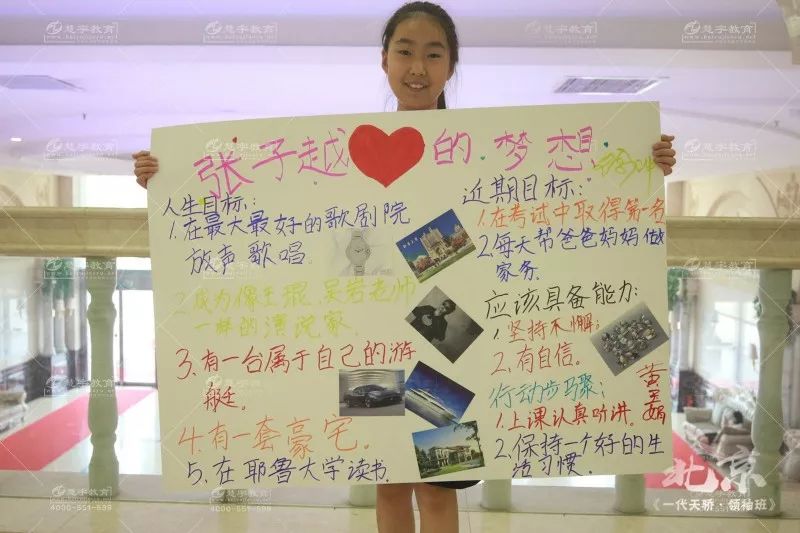 张子越的梦想
人生目标:
1.在最大最好的歌剧院
放声歌唱.
2.成为像王琨.吴若老师
一样的演说家.
3.有一台属于自己的游
艇.
4.有一套豪宅.
5.在耶鲁大学读书.
近期目标:
1.在考试中取得第一名
2.每天帮爸爸妈妈做
家务.
应该具备能力:
1.坚持不懈;
2.有自信.
行动步骤;
1.上课认真听讲.
2.保持一个好的生
活习惯.
慧宇教育
4000-551-599
北京
《一代天骄·领袖班》